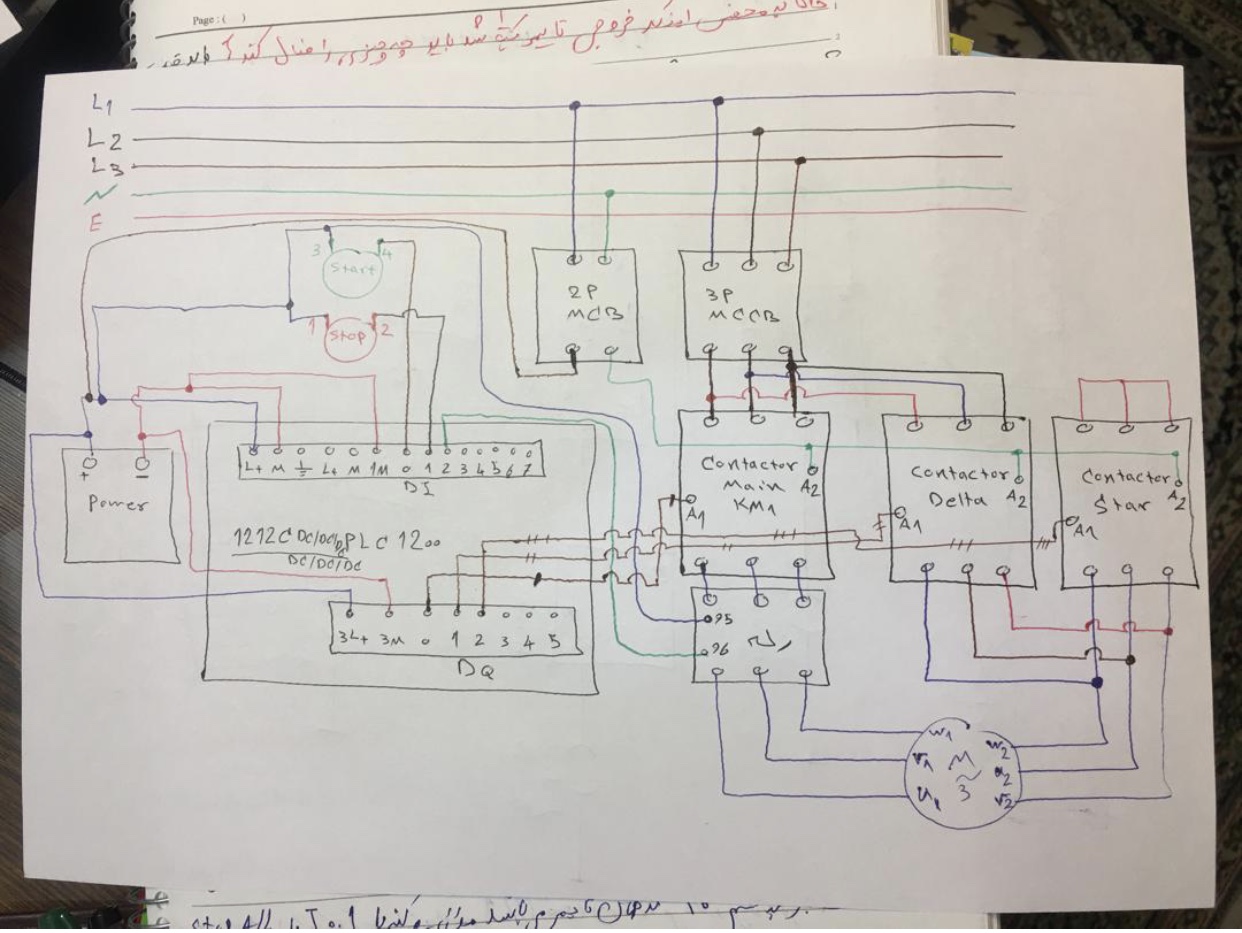 Page : ( )
L1
L2
L3
N
E
3 Start 4
1 Stop 2
2P
MCB
3P
MCCB
+ −
Power
L+ M L+ M 1M 0 1 2 3 4 5 6 7
DI
1212C DC/DC/D PLC 1200
DC/DC/DC
3L+ 3M 0 1 2 3 4 5
DQ
Contactor
Main A2
KM1
A1
Contactor
Delta A2
A1
Contactor
Star A2
A1
95
96 رله
W1 W2
V1 M U2
U1 3 V2